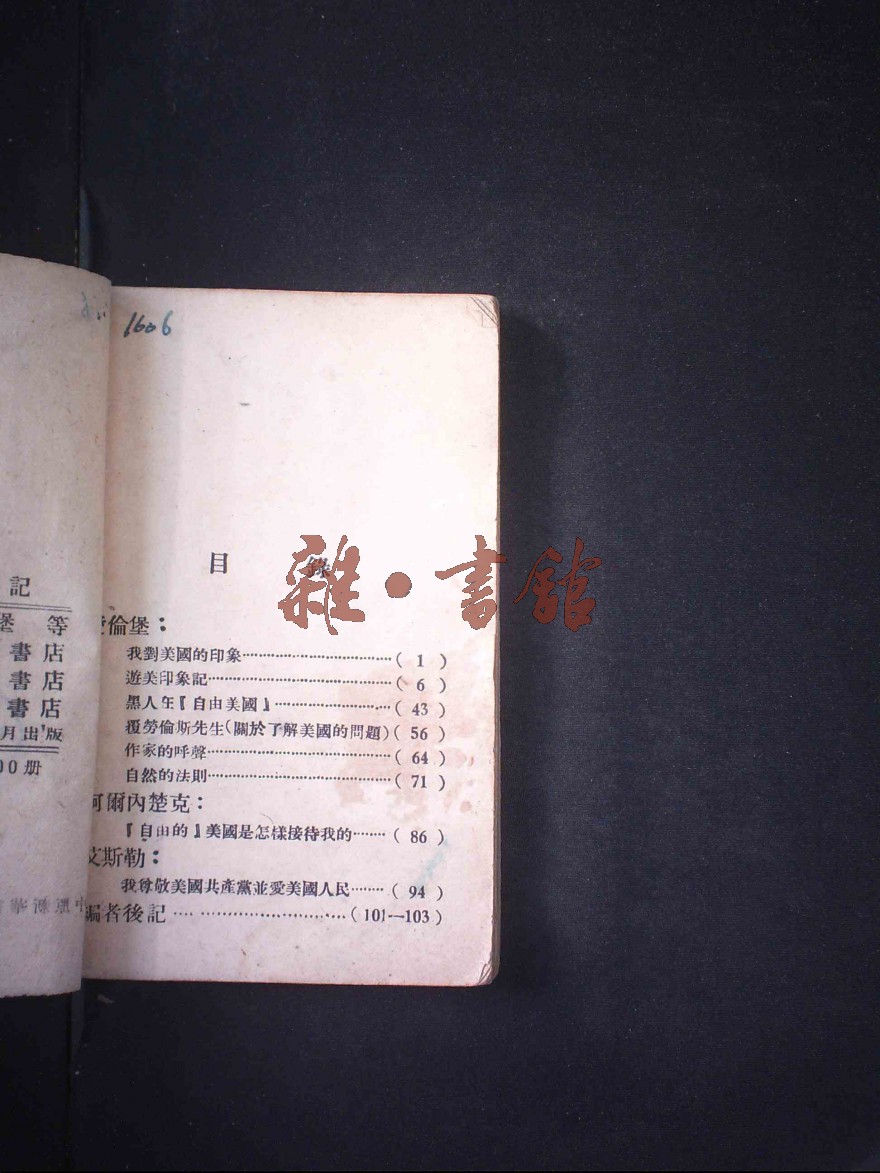 記
堡 等
書 店
書 店
書 店
月出版
00 册
1606
目 錄
愛倫堡：
我對美國的印象……………………………( 1 )
遊美印象記……………………………( 6 )
黑人在『自由美國』……………………( 43 )
覆勞倫斯先生(關於了解美國的問題)( 56 )
作家的呼聲……………………………( 64 )
自然的法則……………………………( 71 )
阿爾內楚克：
『自由的』美國是怎樣接待我的……( 86 )
艾斯勒：
我尊敬美國共產黨並愛美國人民……( 94 )
編者後記……………………( 101—103 )
雜·書館